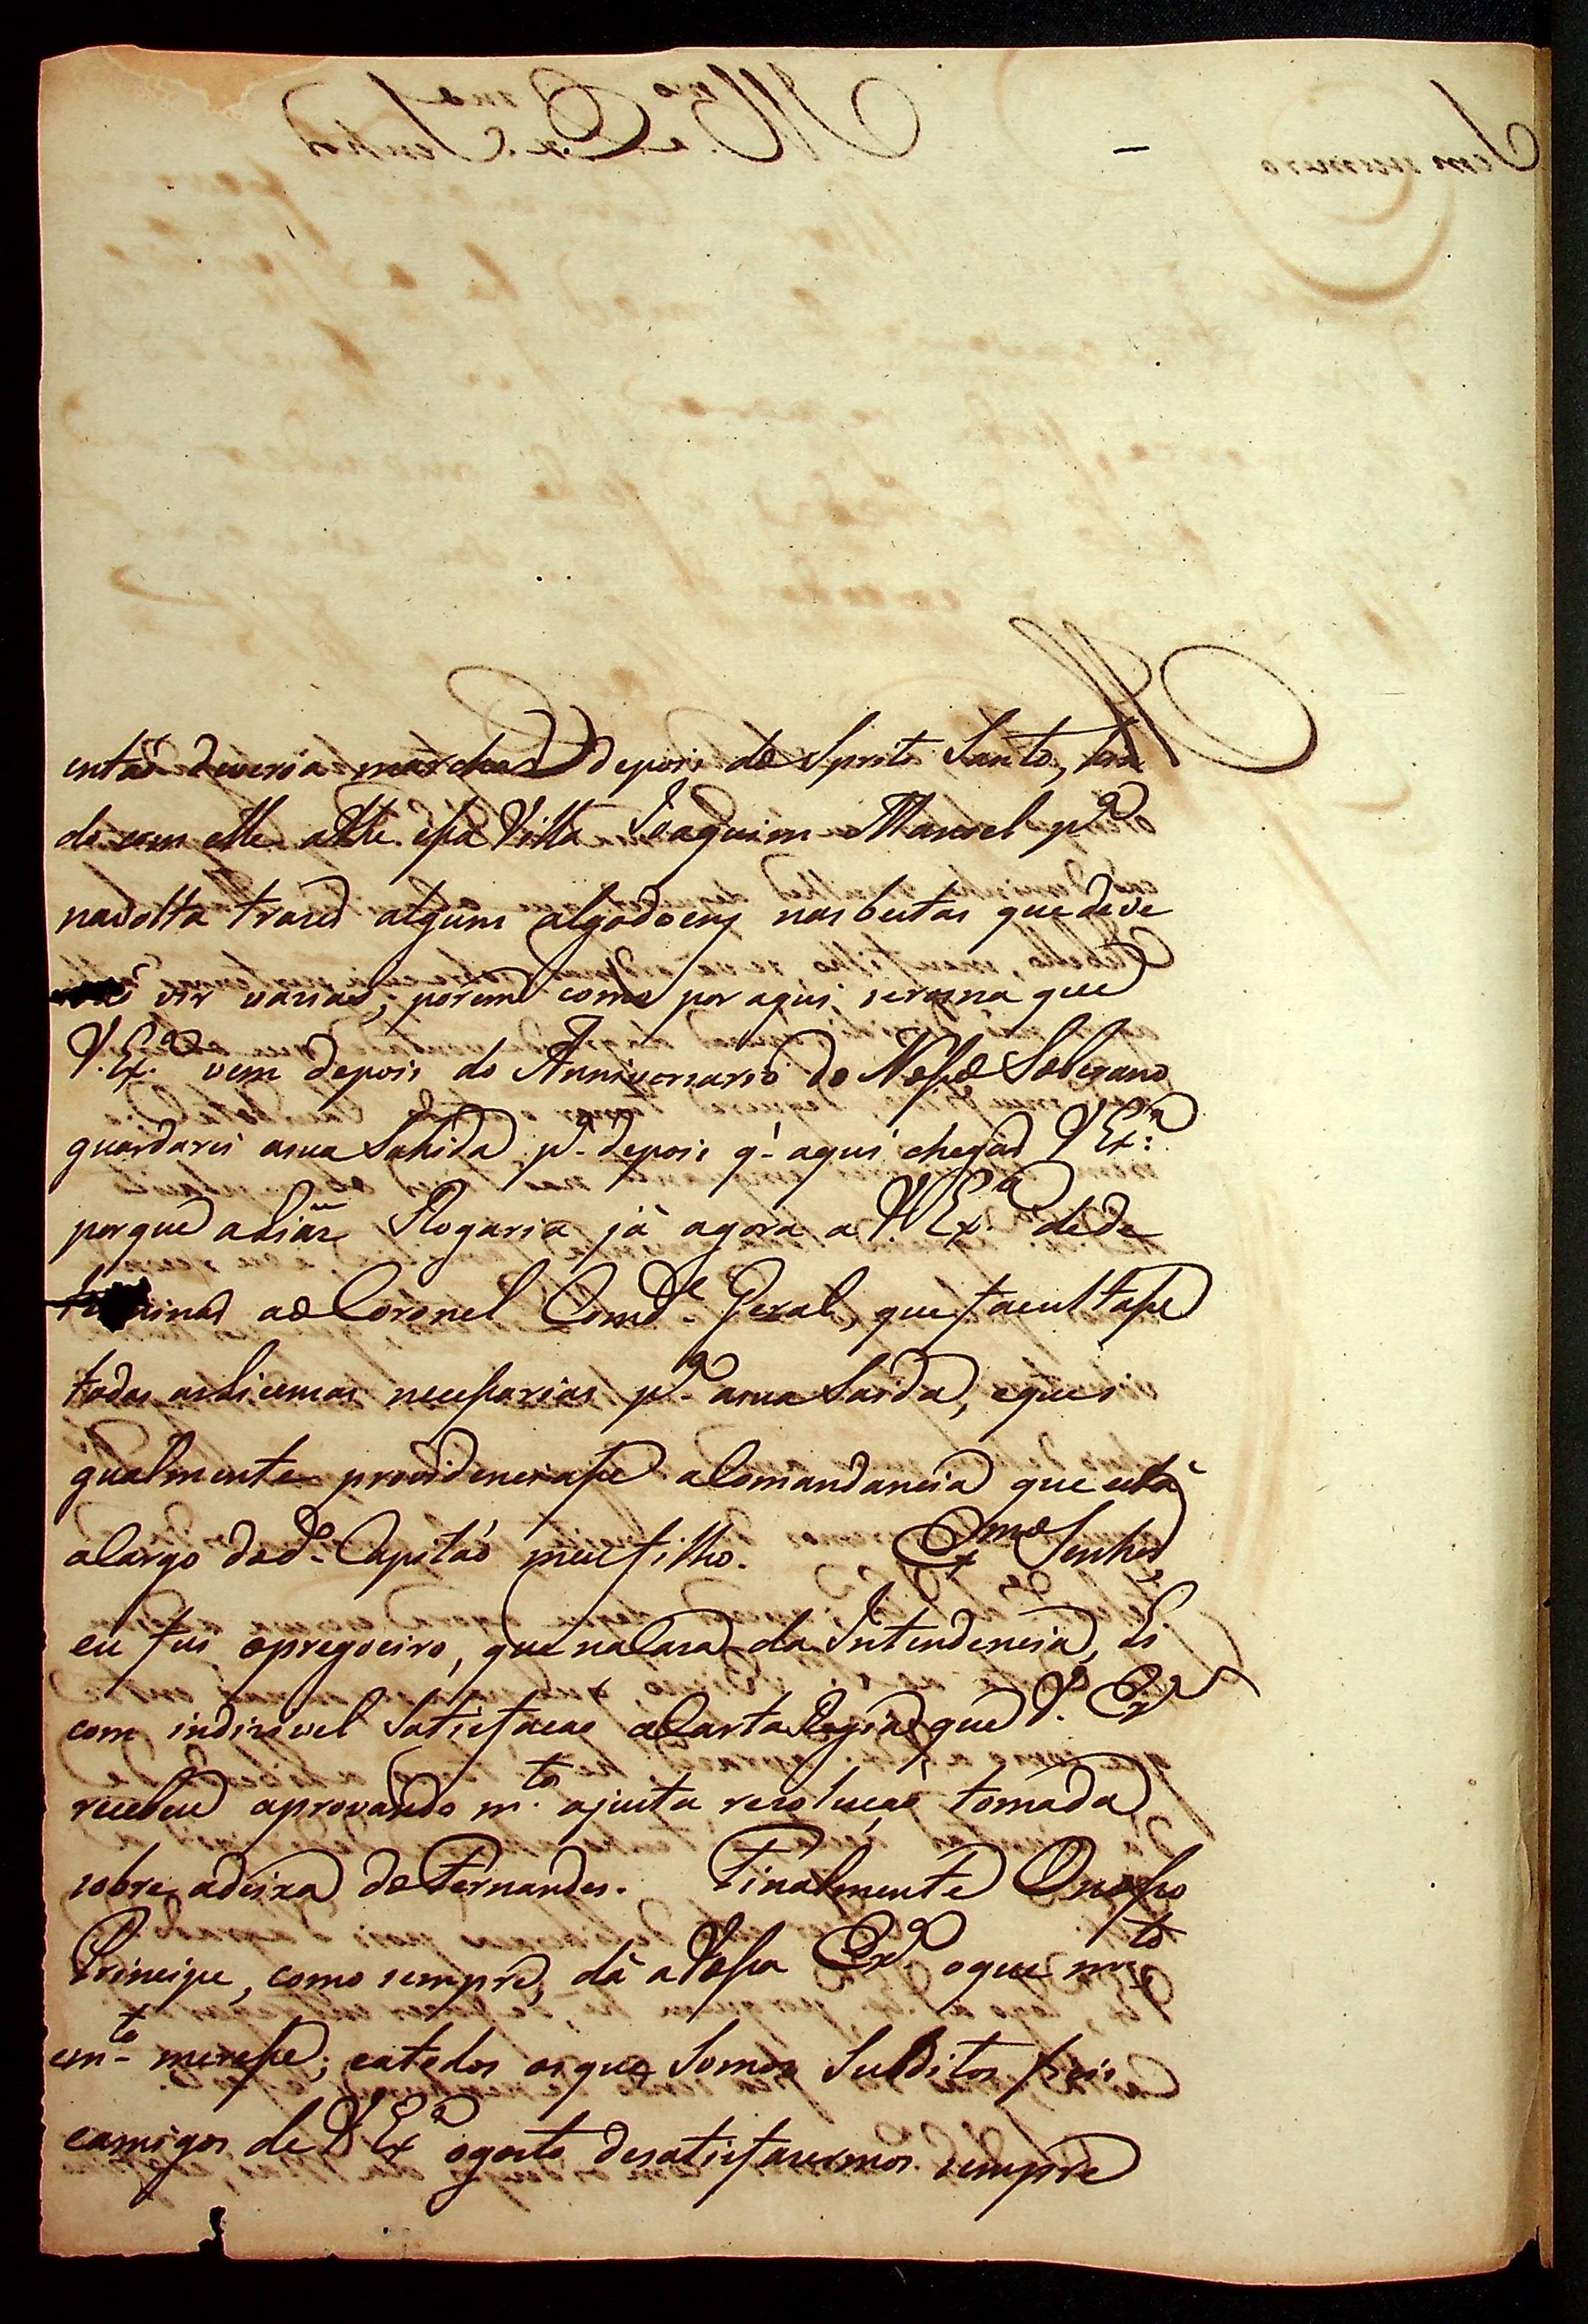 então deveria marchar depois do Sprito Santo, hin
do com elle athe essa Villa Joaquim Manoel p.ª
navolta trazer alguns algodoens nas bestas que deve
vir varias; porem como por aqui serosna que
V. Ex.ª vem depois do Anniversario do Nosso Soberano
guardares asua Sahida p.ª depois q' aqui chegar V Ex.ª
porque aliàz Rogaria já agora a V. Ex.ª dede
ao Coronel Comd.e Geral, que facultasse
todas as Licensas necessarias p.ª asua Saida, eque i
gualmente providenciasse a Comandancia que està
a Cargo dod.º Capitaó meu filho. Ex.mo Senhor
eu fui opregoeiro, que na Casa da Intendencia, Li
com indizivel Satisfacao a Carta Regia que V. Ex.ª
recebeu aprovando m.to ajusta resolução tomada
sobre adeixa do Fernandes. Finalmente O nosso
Principe, como sempre, dá a Vossa Ex.ª oque m.to
em.to meresse; eatodos osque Somos Subditos fieis
eamigos de V Ex.ª ogosto desatisfazermos sempre